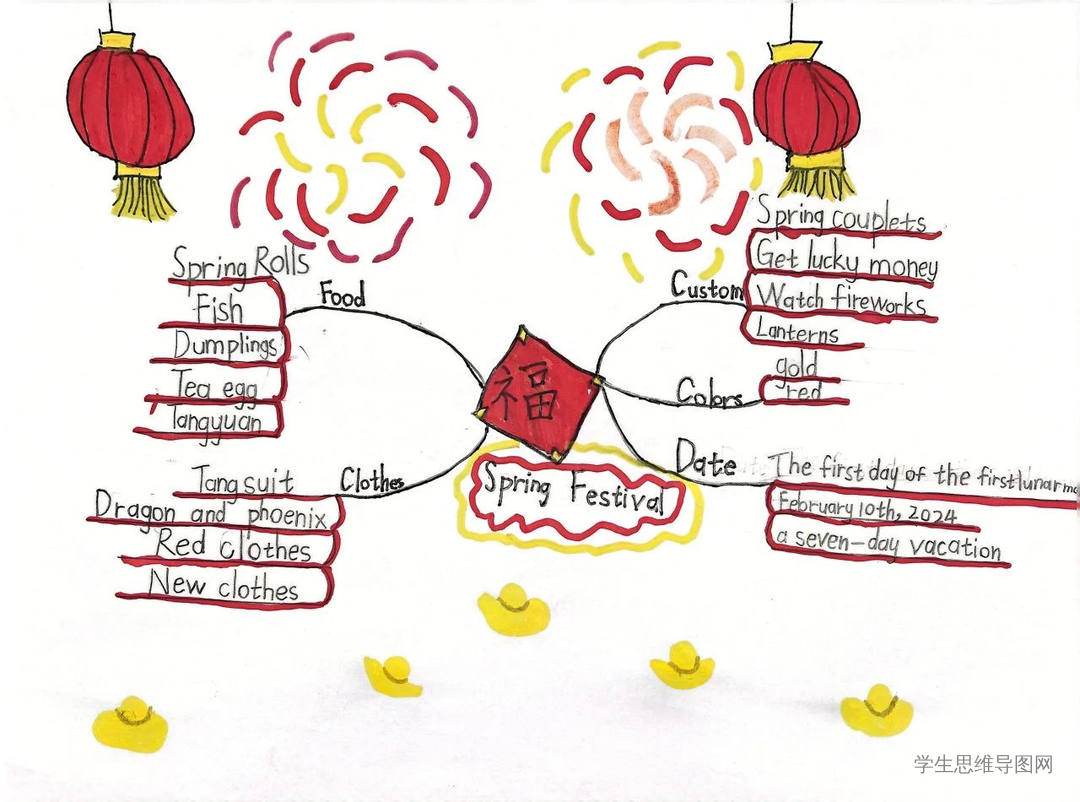 Spring Rolls
Fish
Dumplings
Tea egg
Tangyuan
Food
Tang suit
Dragon and phoenix
Red clothes
New clothes
Clothes
福
Spring Festival
Custom
Spring couplets
Get lucky money
Watch fireworks
Lanterns
Colors
gold
red
Date
The first day of the first lunar
February 10th, 2024
a seven-day vacation
学生思维导图网